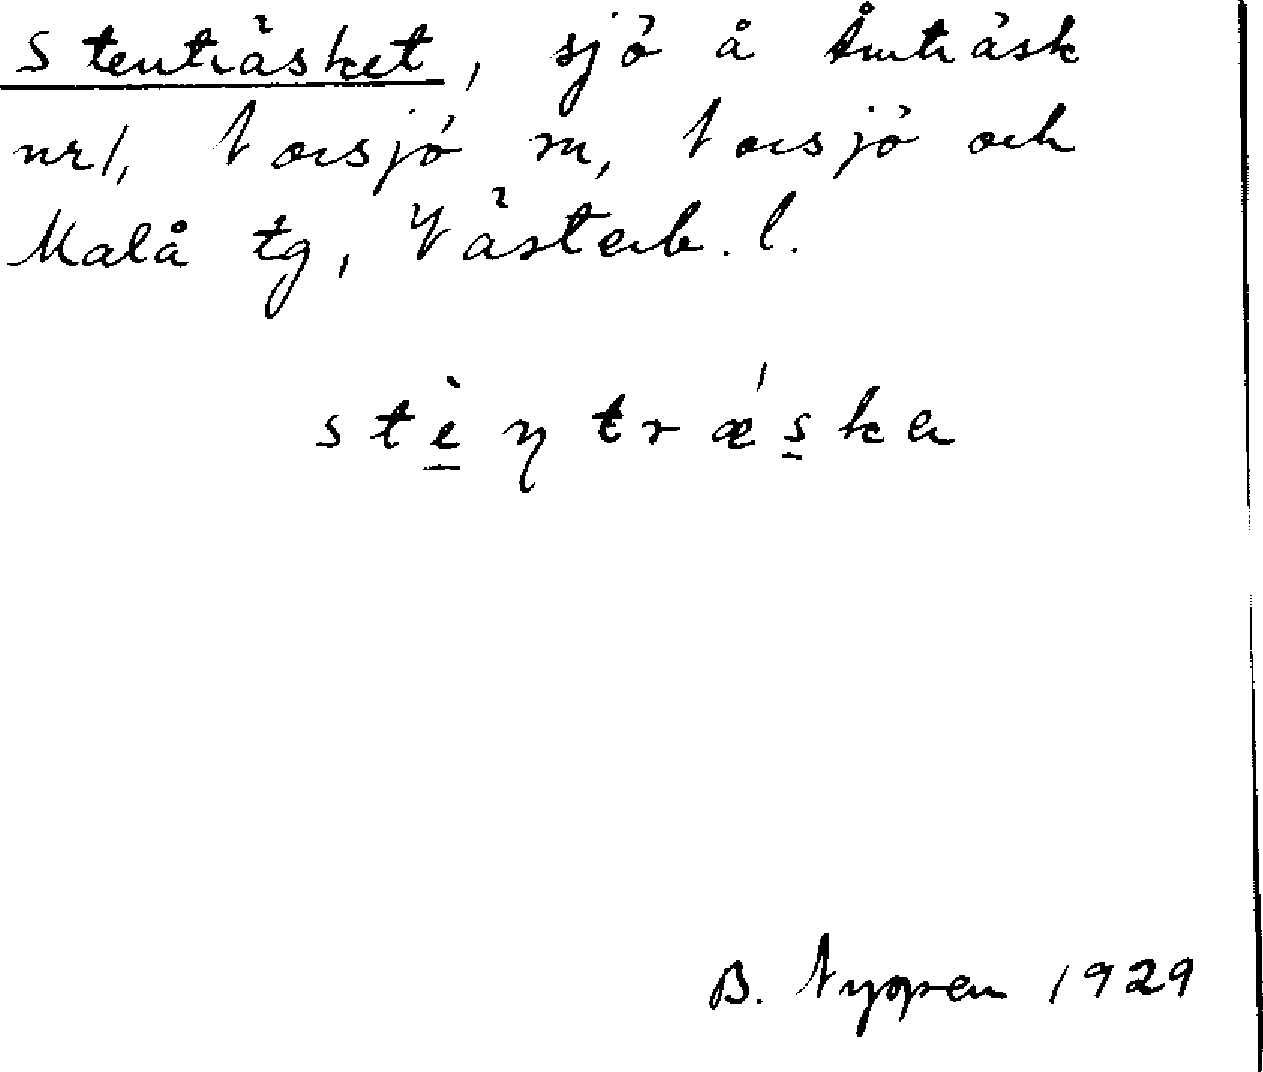 Stenträsket, sjö å Åmträsk
nr 1, Norsjö sn, Norsjö och
Malå tg, Västerb. l.
stèn træ´ska
B. Nyopen 1929